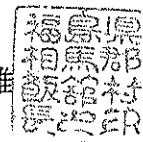 福島県
相馬郡
飯舘村
長之印